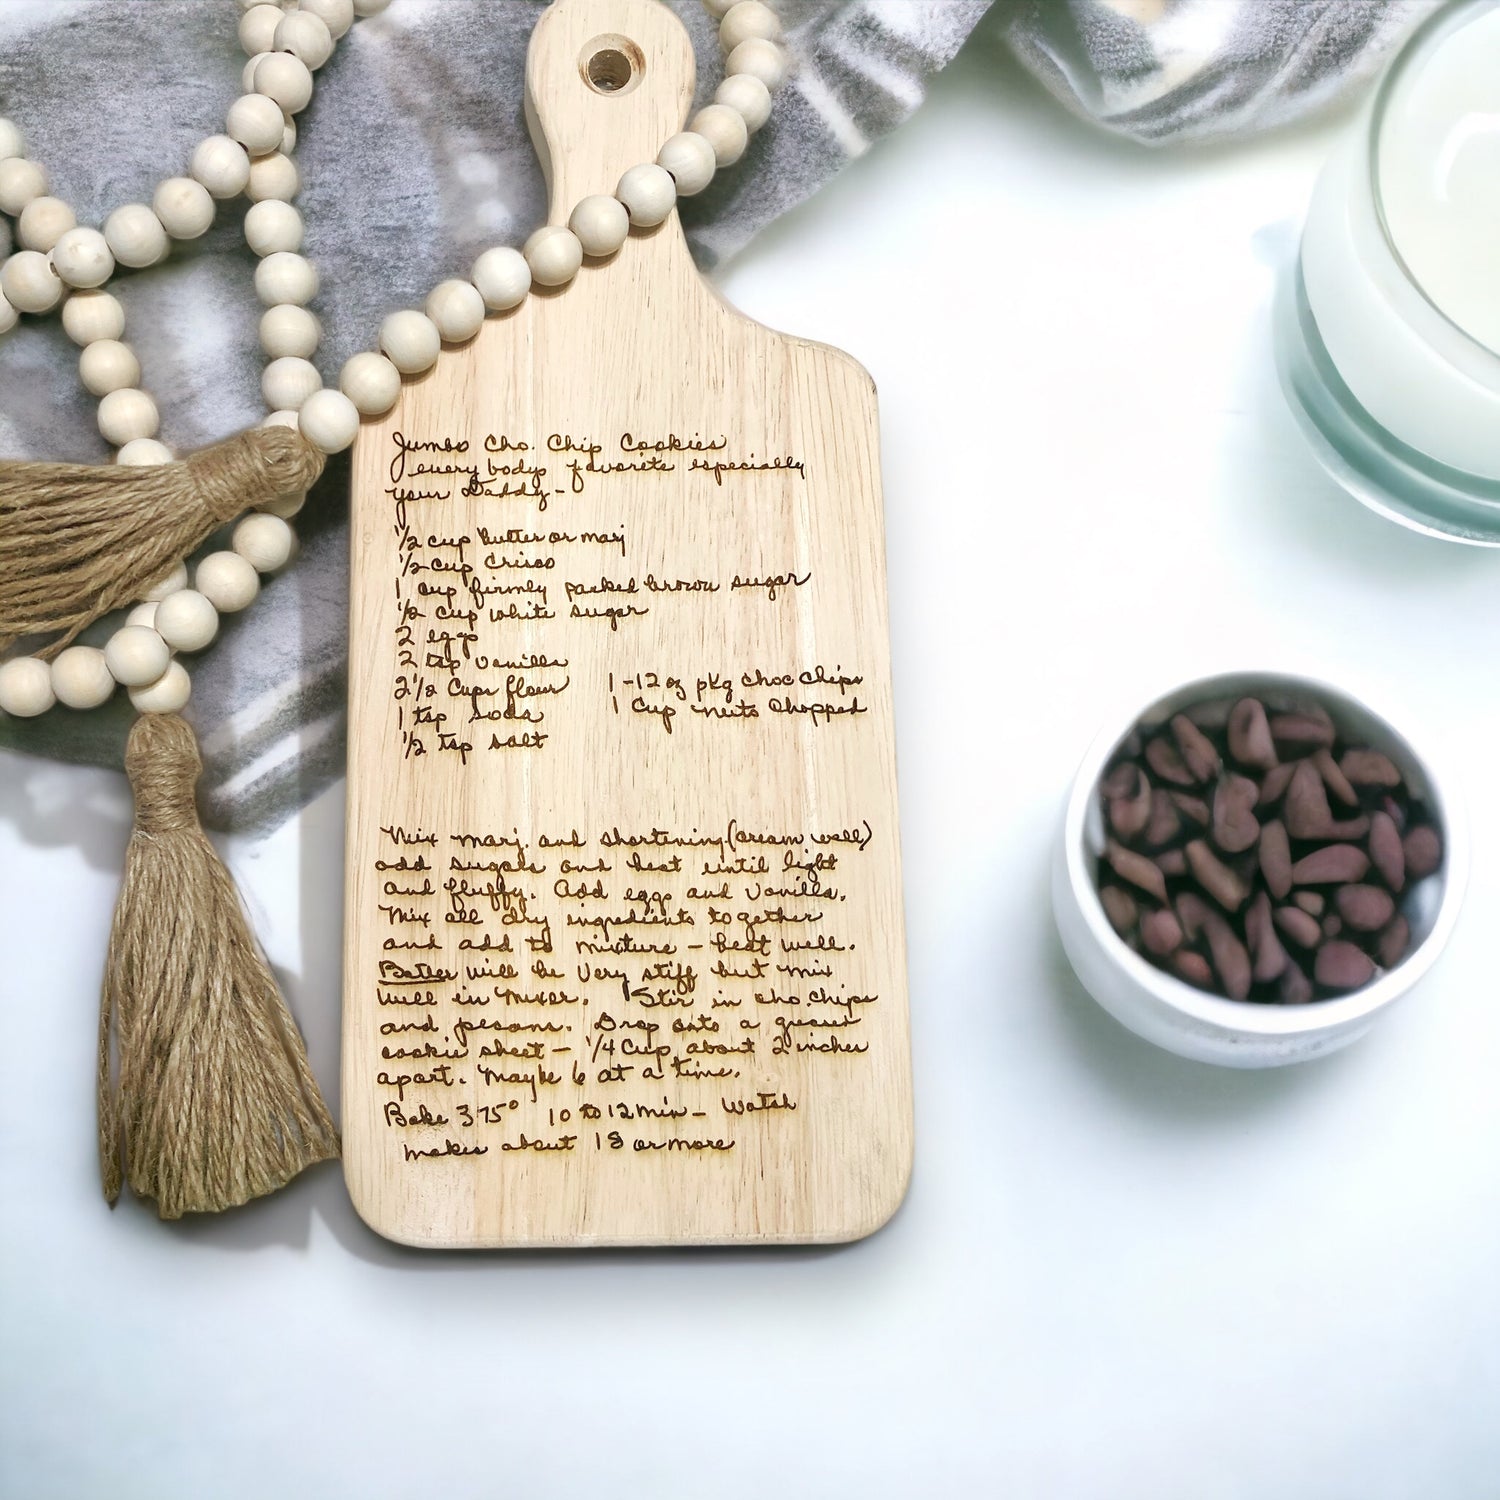 Jumbo Cho. Chip Cookies
everybodys favorite especially
your Daddy-
1/2 cup butter or marj
1/2 cup Crisco
1 cup firmly packed brown sugar
1/2 cup white sugar
2 eggs
2 tsp vanilla
2 1/2 Cups flour
1 tsp soda
1/2 tsp salt
1-12 oz pkg choc chips
1 Cup nuts Chopped
Mix marj. and shortening (cream well)
add sugars and beat until light
and fluffy. Add eggs and vanilla.
Mix all dry ingredients together
and add to mixture - beat well.
Batter will be very stiff but mix
well in mixer. Stir in cho. chips
and pecans. Drop onto a greased
cookie sheet - 1/4 Cup about 2 inches
apart. Maybe 6 at a time.
Bake 375° 10 to 12 min - Watch
makes about 18 or more